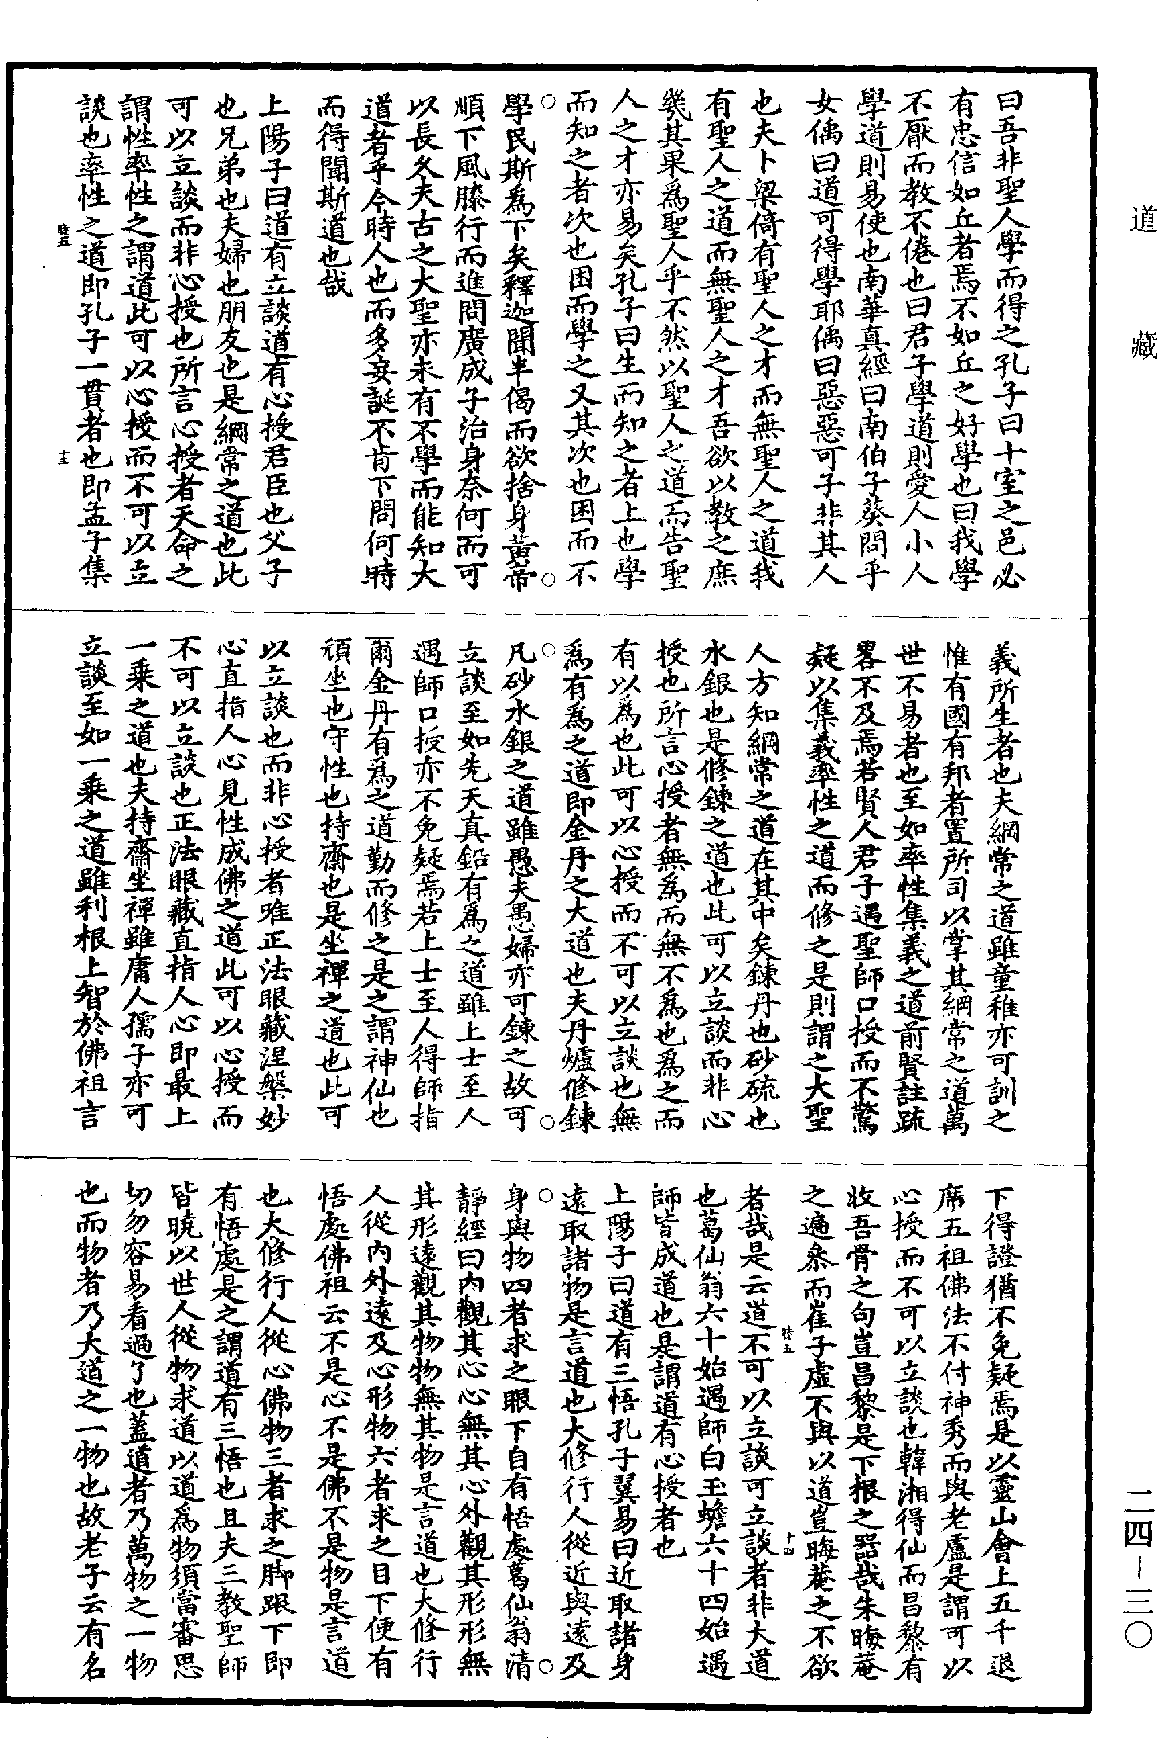 道藏
曰吾非聖人學而得之孔子曰十室之邑必
有忠信如丘者焉不如丘之好學也曰我學
不厭而教不倦也曰君子學道則愛人小人
學道則易使也南華真經曰南伯子葵問乎
女偊曰道可得學耶偊曰惡惡可子非其人
也夫卜梁倚有聖人之才而無聖人之道我
有聖人之道而無聖人之才吾欲以教之庶
幾其果爲聖人乎不然以聖人之道而告聖
人之才亦易矣孔子曰生而知之者上也學
而知之者次也困而學之又其次也困而不
學民斯爲下矣釋迦聞半偈而欲捨身黃帝
順下風膝行而進問廣成子治身奈何而可
以長久夫古之大聖亦未有不學而能知大
道者乎今時人也而多妄誕不肯下問何時
而得聞斯道也哉
上陽子曰道有立談道有心授君臣也父子
也兄弟也夫婦也朋友也是綱常之道也此
可以立談而非心授也所言心授者天命之
謂性率性之謂道此可以心授而不可以立
談也率性之道即孔子一貫者也即孟子集
義所生者也夫綱常之道雖童稚亦可訓之
惟有國有邦者置所司以掌其綱常之道萬
世不易者也至如率性集義之道前賢註疏
畧不及焉若賢人君子遇聖師口授而不驚
疑以集義率性之道而修之是則謂之大聖
人方知綱常之道在其中矣鍊丹也砂硫也
水銀也是修鍊之道也此可以立談而非心
授也所言心授者無爲而無不爲也爲之而
有以爲也此可以心授而不可以立談也無
爲有爲之道即金丹之大道也夫丹爐修鍊
凡砂水銀之道雖愚夫愚婦亦可鍊之故可
立談至如先天真鉛有爲之道雖上士至人
遇師口授亦不免疑焉若上士至人得師指
爾金丹有爲之道勤而修之是之謂神仙也
頑坐也守性也持齋也是坐禪之道也此可
以立談也而非心授者唯正法眼藏涅槃妙
心直指人心見性成佛之道此可以心授而
不可以立談也正法眼藏直指人心即最上
一乘之道也夫持齋坐禪雖庸人孺子亦可
立談至如一乘之道雖利根上智於佛祖言
下得證猶不免疑焉是以靈山會上五千退
席五祖佛法不付神秀而與老盧是謂可以
心授而不可以立談也韓湘得仙而昌黎有
收吾骨之句豈昌黎是下根之器哉朱晦菴
之遍叅而崔子虛不與以道豈晦菴之不欲
者哉是云道不可以立談可立談者非大道
也葛仙翁六十始遇師白玉蟾六十四始遇
師皆成道也是謂道有心授者也
上陽子曰道有三悟孔子翼易曰近取諸身
遠取諸物是言道也大修行人從近與遠及
身與物四者求之眼下自有悟處葛仙翁清
靜經曰內觀其心心無其心外觀其形形無
其形遠觀其物物無其物是言道也大修行
人從內外遠及心形物六者求之目下便有
悟處佛祖云不是心不是佛不是物是言道
也大修行人從心佛物三者求之脚跟下即
有悟處是之謂道有三悟也且夫三教聖師
皆曉以世人從物求道以道爲物須當審思
切勿容易看過了也蓋道者乃萬物之一物
也而物者乃大道之一物也故老子云有名
二四–三〇